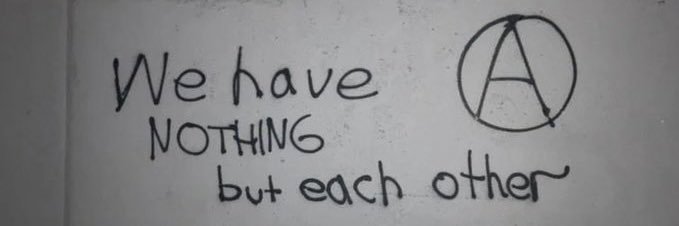 We have Ⓐ
NOTHING
but each other